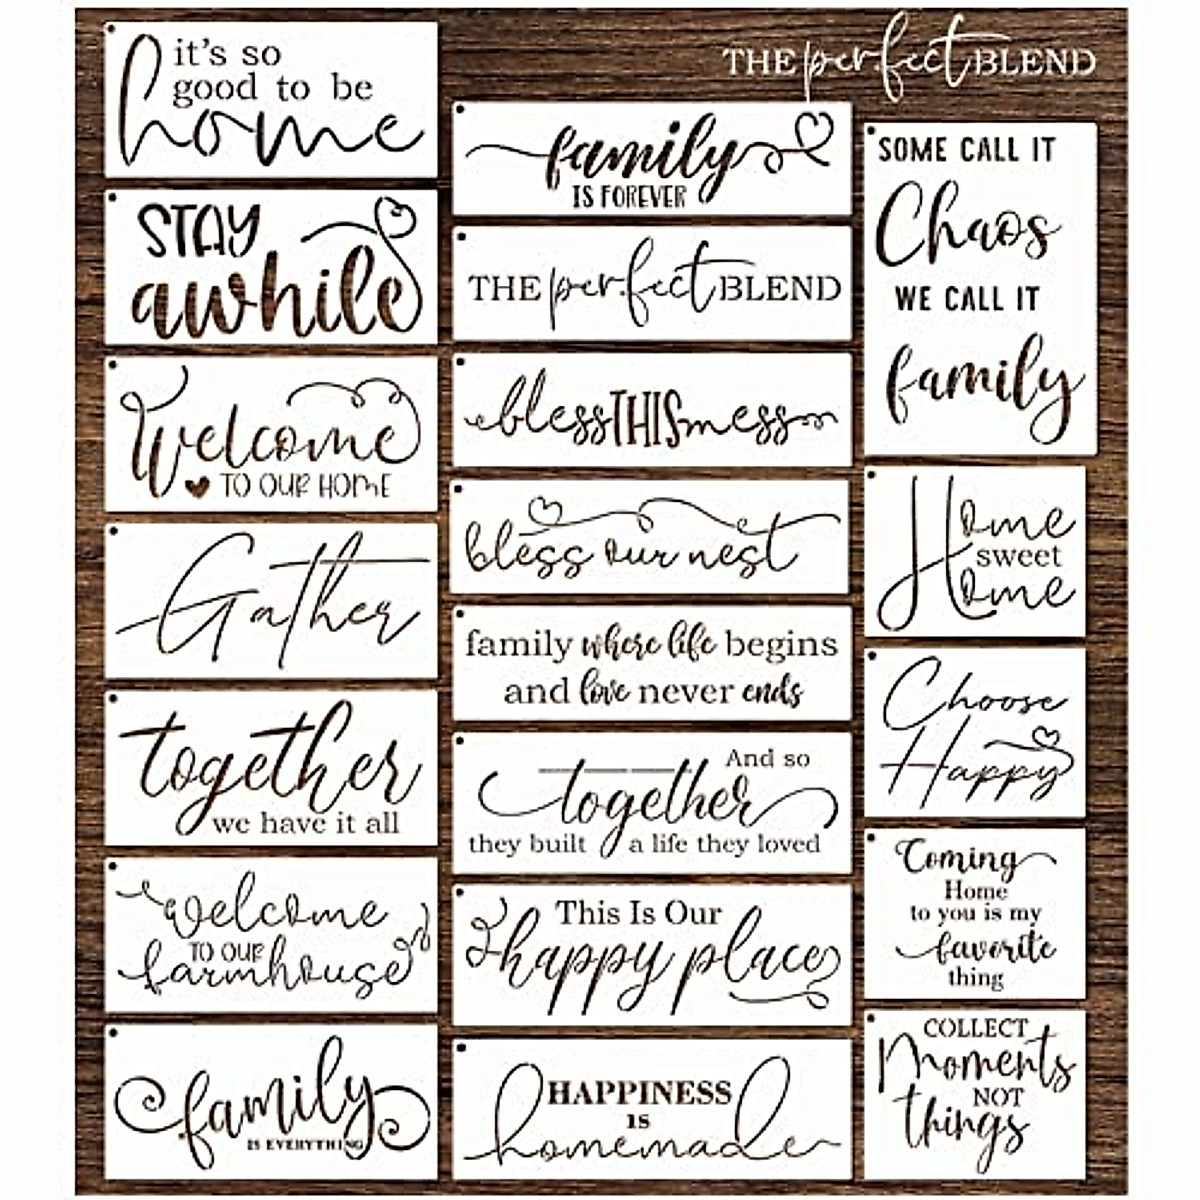 it's so
good to be
home
STAY
awhile
Welcome
TO OUR HOME
Gather
together
we have it all
welcome
TO OUR
farmhouse
family
IS EVERYTHING
THE perfect BLEND
family
IS FOREVER
THE perfect BLEND
bless THIS mess
bless our nest
family where life begins
and love never ends
And so
together
they built a life they loved
This Is Our
happy place
HAPPINESS
IS
homemade
SOME CALL IT
Chaos
WE CALL IT
family
Home
sweet
Home
Choose
Happy
Coming
Home
to you is my
favorite
thing
COLLECT
Moments
NOT
things